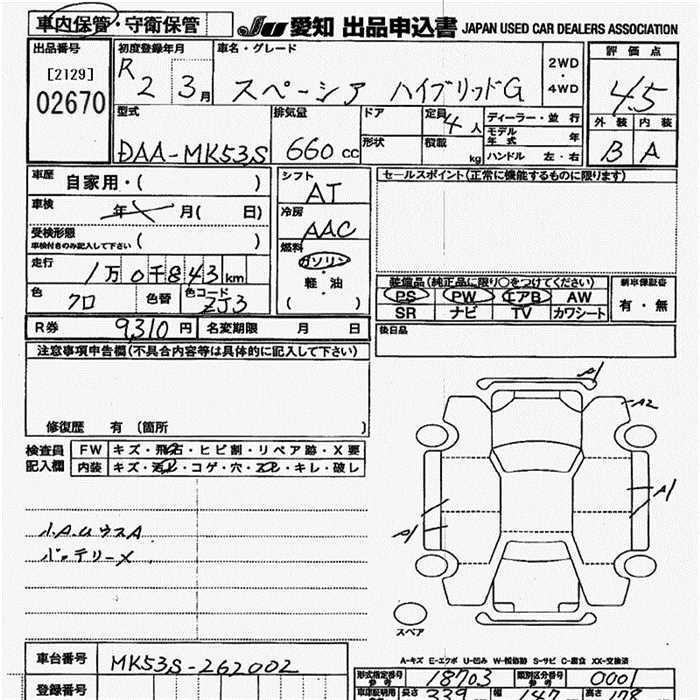 車内保管・守衛保管
JU 愛知 出品申込書 JAPAN USED CAR DEALERS ASSOCIATION
出品番号
[2129]
02670
初度登録年月
R 2 3月
車名・グレード
スペーシア ハイブリッドG
2WD
・
4WD
評価点
4.5
外装 内装
B A
型式
DAA-MK53S
排気量
660 cc
ドア
形状
定員
4人
積載
kg
ディーラー・並行
モデル年式 年
ハンドル 左・右
車歴 自家用・( )
車検 年 月( 日)
受検形態
車検付きのみ記入して下さい ( )
走行
1万0千843km
色
クロ
色替
色コード
ZJ3
シフト
AT
冷房
AAC
燃料
ガソリン
・
軽・油
( )
セールスポイント(正常に機能するものに限ります)
装備品(純正品に限り○をつけてください)
PS PW エアB AW
SR ナビ TV カワシート
新車保証書
有・無
後日品
R券 9310円 名変期限 月 日
注意事項申告欄(不具合内容等は具体的に記入して下さい)
修復歴 有(箇所 )
検査員
記入欄
FW キズ・飛石・ヒビ割・リペア跡・X要
内装 キズ・汚レ・コゲ・穴・スレ・キレ・破レ
バッテリーX
A1
A2
A1
A1
スペア
A-キズ E-エクボ U-凹み W-板金跡 S-サビ C-腐食 XX-交換済
車台番号
MK53S-262002
登録番号
型式指定番号
参考
18703
類別区分番号
参考
0001
車庫証明用
参考
長さ 339 幅 147 高さ 178